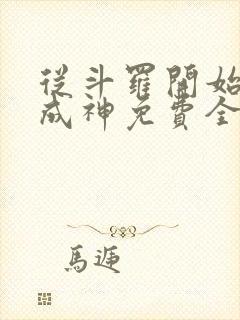 從斗羅開始
成神免費全
馬遞